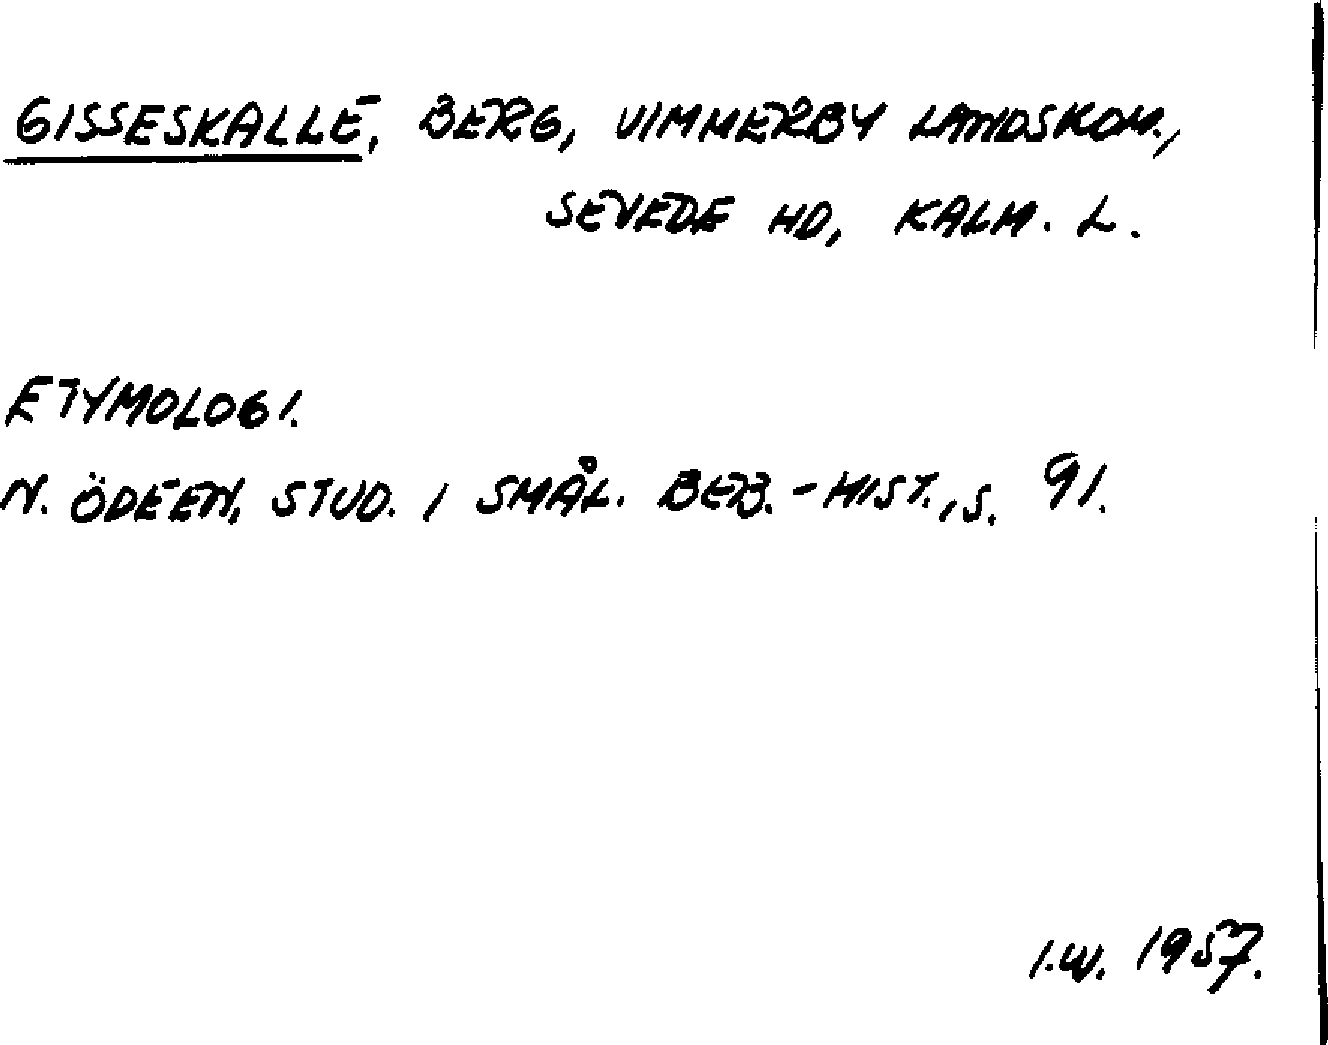 GISSESKALLE, BERG, VIMMERBY LANDSKOM.,
SEVEDE HD, KALM. L.
ETYMOLOGI.
N. ÖDÉEN, STUD. I SMÅL. BEB.-HIST., S. 91.
I.W. 1957.